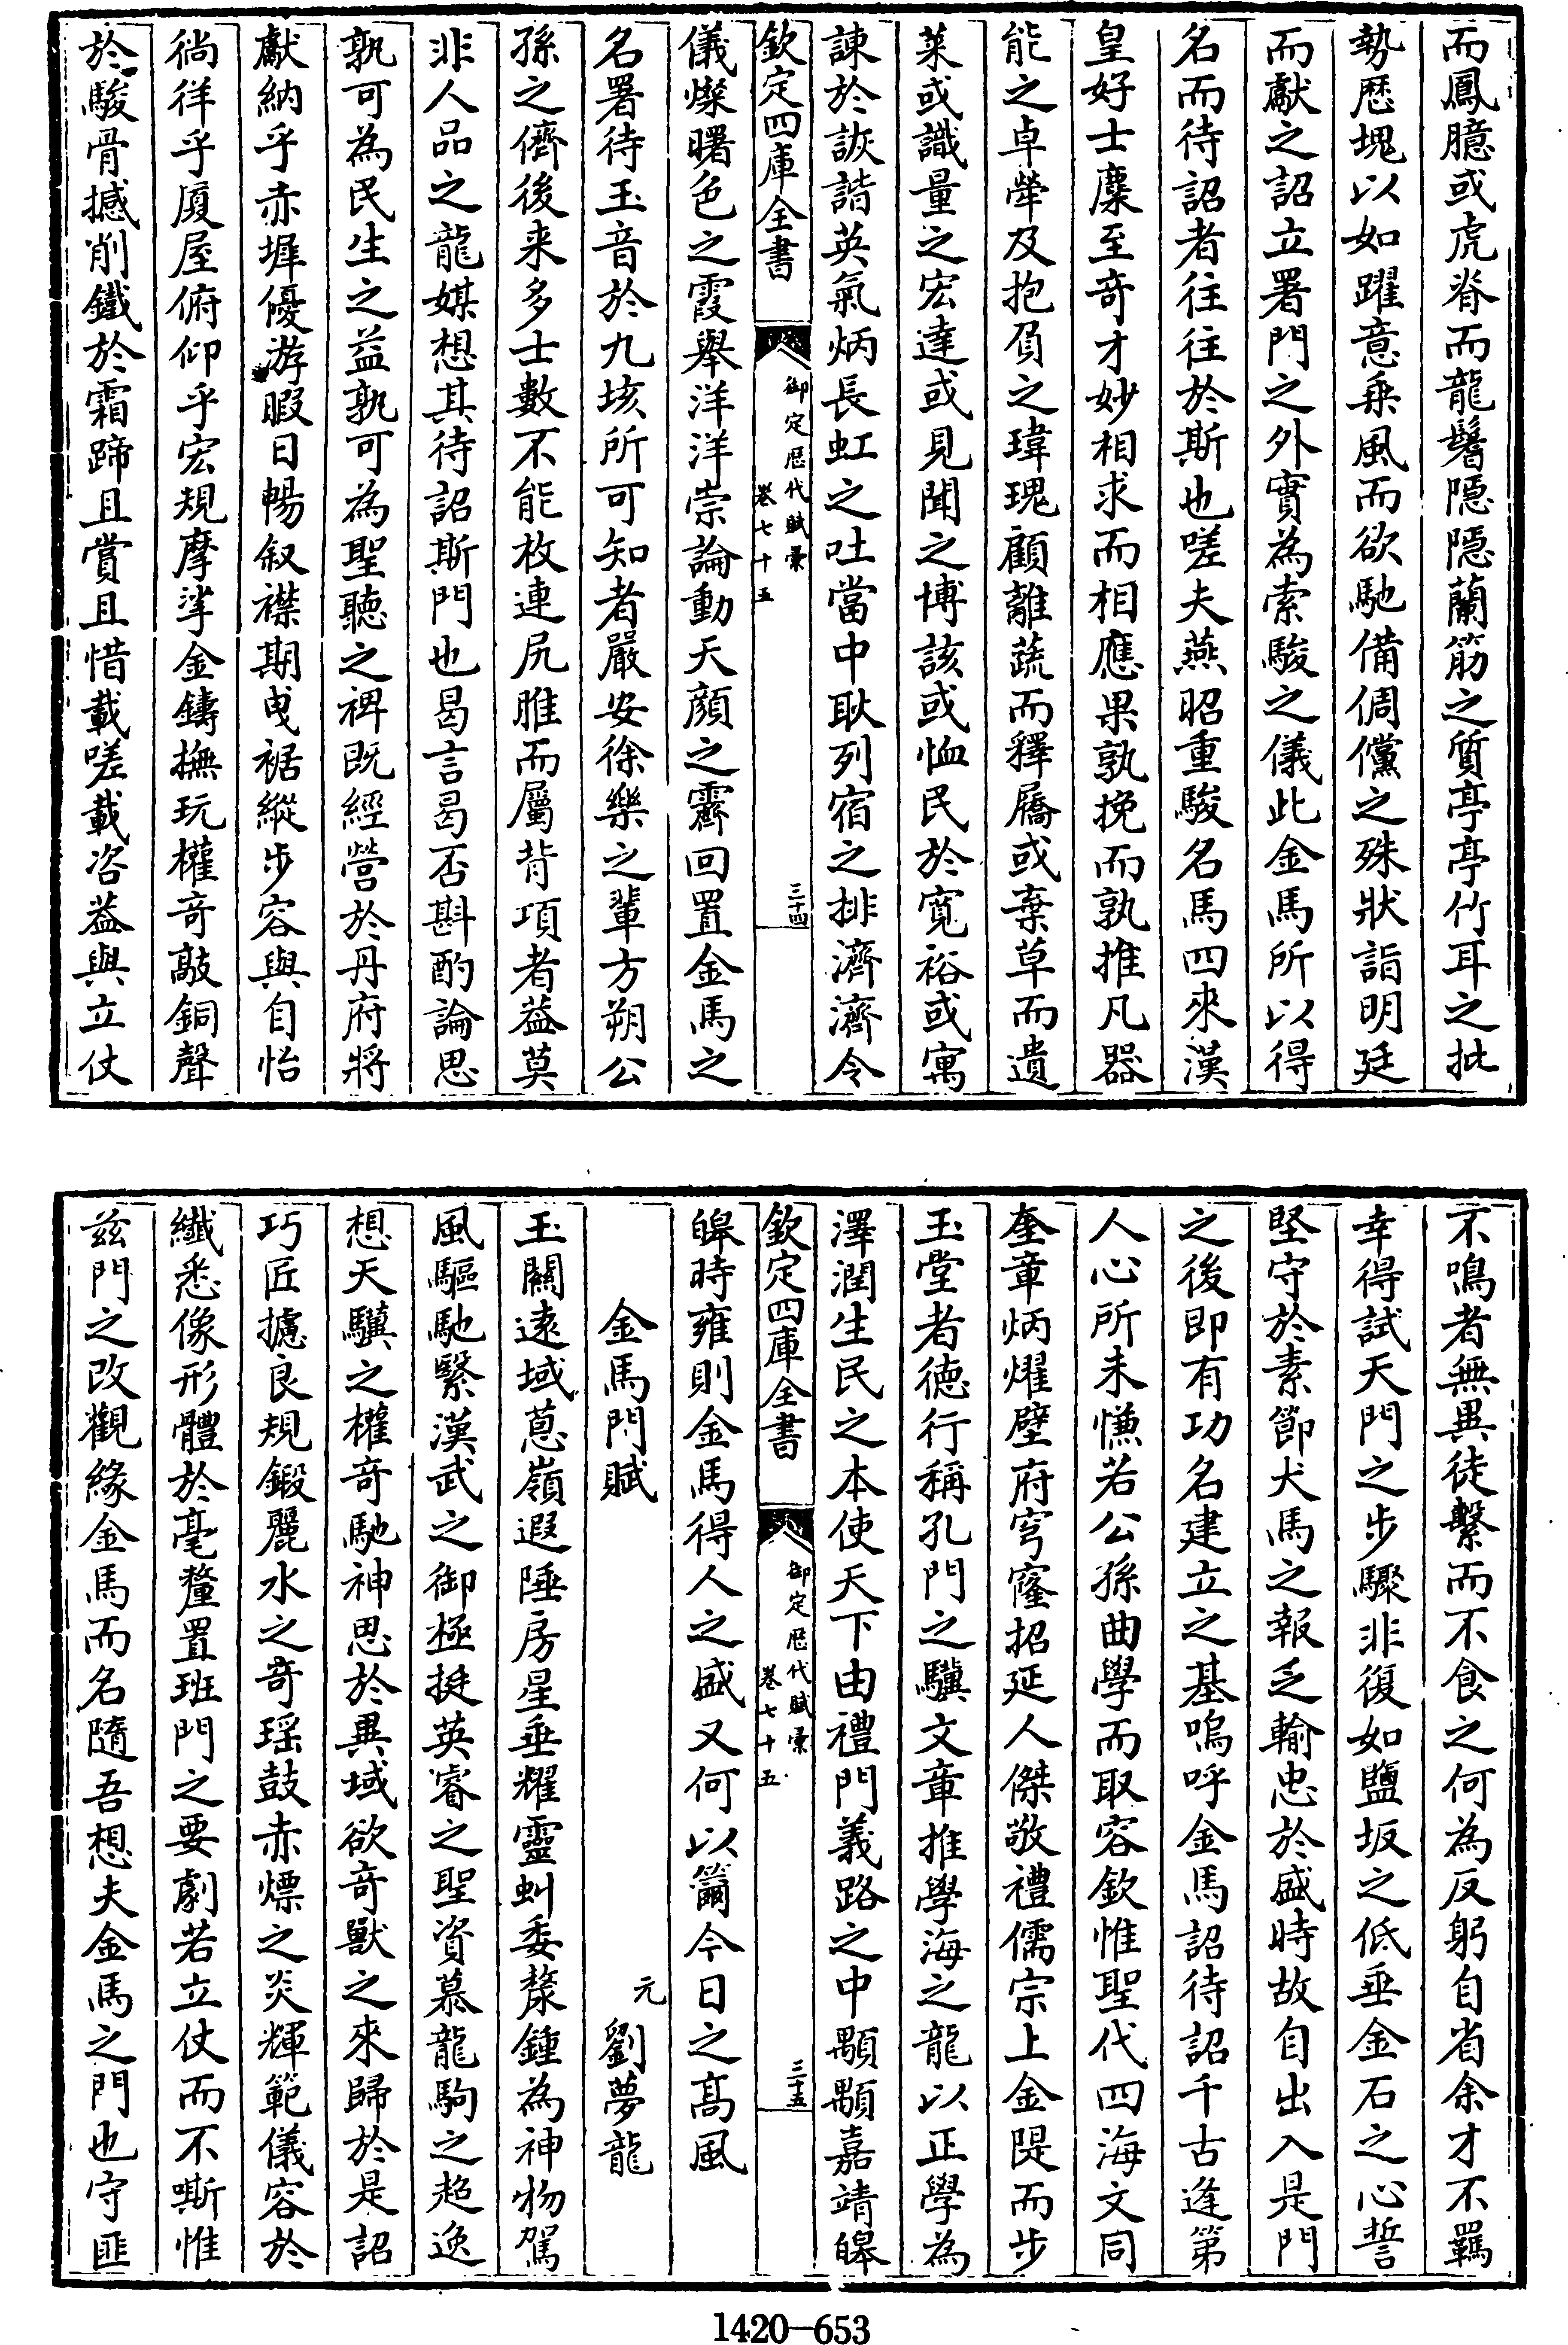 而鳳臆或虎脊而龍鬐隱隱蘭筋之質亭亭竹耳之批
勢歴塊以如躍意乗風而欲馳備倜儻之殊狀詣明廷
而獻之詔立署門之外實為索駿之儀此金馬所以得
名而待詔者往往於斯也嗟夫燕昭重駿名馬四來漢
皇好士麋至竒才妙相求而相應果孰挽而孰推凡器
能之卓犖及抱負之瑋瑰顧離蔬而釋屩或棄草而遺
萊或識量之宏達或見聞之博該或恤民於寛裕或寓
諫於詼諧英氣炳長虹之吐當中耿列宿之排濟濟令
欽定四庫全書
御定歴代賦彙
卷七十五
三十四
儀燦曙色之霞舉洋洋崇論動天顔之霽回置金馬之
名署待玉音於九垓所可知者嚴安徐樂之軰方朔公
孫之儕後来多士數不能枚連尻脽而屬背項者葢莫
非人品之龍媒想其待詔斯門也曷言曷否斟酌論思
孰可為民生之益孰可為聖聽之裨既經營於丹府將
獻納乎赤墀優游暇日暢叙襟期曳裾縱步容與自怡
徜徉乎厦屋俯仰乎宏規摩挲金鑄撫玩權竒敲銅聲
於駿骨撼削鐵於霜蹄且賞且惜載嗟載咨葢與立仗
不鳴者無異徒繫而不食之何為反躬自省余才不羈
幸得試天門之步驟非復如鹽坂之低垂金石之心誓
堅守於素節犬馬之報乏輸忠於盛時故自出入是門
之後即有功名建立之基嗚呼金馬詔待詔千古逢第
人心所未慊若公孫曲學而取容欽惟聖代四海文同
奎章炳燿壁府穹窿招延人傑敬禮儒宗上金隄而步
玉堂者徳行稱孔門之驥文章推學海之龍以正學為
澤潤生民之本使天下由禮門義路之中顒顒嘉靖皞
欽定四庫全書
御定歴代賦彙
卷七十五
三十五
皞時雍則金馬得人之盛又何以籋今日之髙風
金馬門賦
元 劉夢龍
玉關逺域蔥嶺遐陲房星垂耀靈虯委漦鍾為神物駕
風驅馳繄漢武之御極挺英睿之聖資慕龍駒之超逸
想天驥之權竒馳神思於異域欲竒獸之來歸於是詔
巧匠攄良規鍛麗水之竒瑶鼓赤熛之炎輝範儀容於
纖悉像形體於毫釐置班門之要劇若立仗而不嘶惟
兹門之改觀緣金馬而名隨吾想夫金馬之門也守匪
1420—653